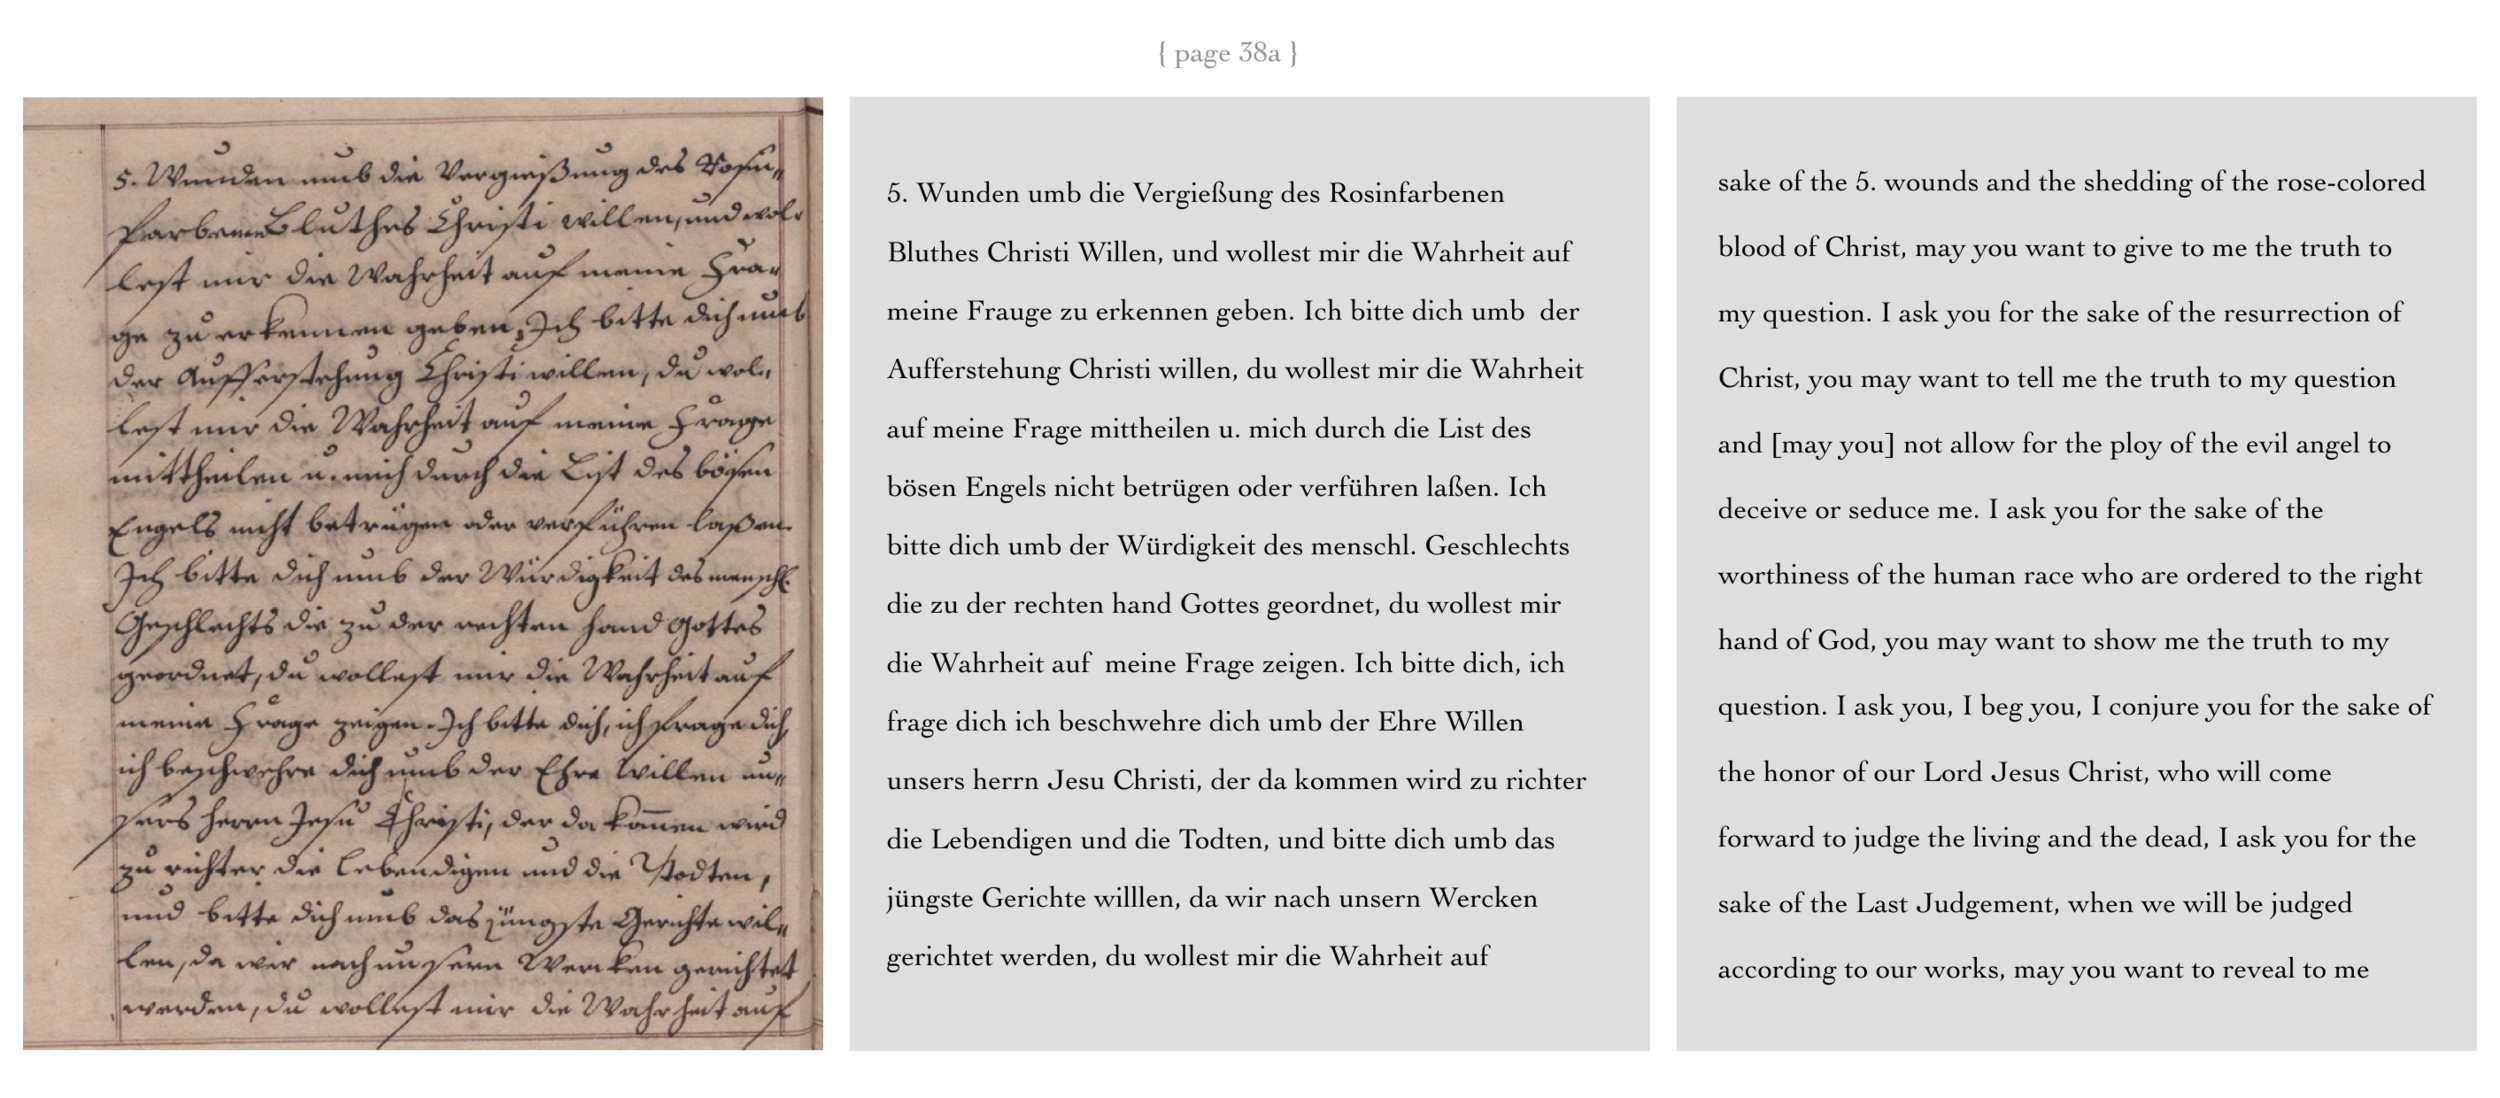 { page 38a }
5. Wunden umb die Vergießung des Rosin„
farbenen Bluthes Christi willen, und wol„
lest mir die Wahrheit auf meine Fra„
ge zu erkennen geben, Ich bitte dich umb
der Aufferstehung Christi willen, du wol„
lest mir die Wahrheit auf meine Frage
mittheilen u. mich durch die List des bösen
Engels nicht betrügen oder verführen laßen.
Ich bitte dich umb der Würdigkeit des menschl.
Geschlechts die zu der rechten hand Gottes
geordnet, du wollest mir die Wahrheit auf
meine Frage zeigen. Ich bitte dich, ich frage dich,
ich beschwehre dich umb der Ehre willen un„
sers herrn Jesu Christi, der da kom̅en wird
zu richter die Lebendigen und die Todten,
und bitte dich umb das jüngste Gerichte wil„
len, da wir nach unsern Wercken gerichtet
werden, du wollest mir die Wahrheit auf
5. Wunden umb die Vergießung des Rosinfarbenen
Bluthes Christi Willen, und wollest mir die Wahrheit auf
meine Frauge zu erkennen geben. Ich bitte dich umb  der
Aufferstehung Christi willen, du wollest mir die Wahrheit
auf meine Frage mittheilen u. mich durch die List des
bösen Engels nicht betrügen oder verführen laßen. Ich
bitte dich umb der Würdigkeit des menschl. Geschlechts
die zu der rechten hand Gottes geordnet, du wollest mir
die Wahrheit auf  meine Frage zeigen. Ich bitte dich, ich
frage dich ich beschwehre dich umb der Ehre Willen
unsers herrn Jesu Christi, der da kommen wird zu richter
die Lebendigen und die Todten, und bitte dich umb das
jüngste Gerichte willlen, da wir nach unsern Wercken
gerichtet werden, du wollest mir die Wahrheit auf
sake of the 5. wounds and the shedding of the rose-colored
blood of Christ, may you want to give to me the truth to
my question. I ask you for the sake of the resurrection of
Christ, you may want to tell me the truth to my question
and [may you] not allow for the ploy of the evil angel to
deceive or seduce me. I ask you for the sake of the
worthiness of the human race who are ordered to the right
hand of God, you may want to show me the truth to my
question. I ask you, I beg you, I conjure you for the sake of
the honor of our Lord Jesus Christ, who will come
forward to judge the living and the dead, I ask you for the
sake of the Last Judgement, when we will be judged
according to our works, may you want to reveal to me